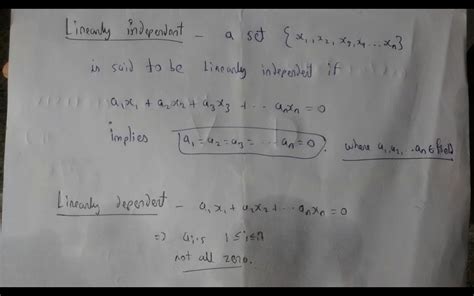 Linearly independent - a set {x₁, x₂, x₃, x₄ ... xₙ}
is said to be linearly independent if
a₁x₁ + a₂x₂ + a₃x₃ + ... aₙxₙ = 0
implies a₁ = a₂ = a₃ = ... aₙ = 0. where a₁, a₂, .. aₙ ∈ field
Linearly dependent - a₁x₁ + a₂x₂ + ... aₙxₙ = 0
⇒ 1 ≤ i ≤ n
not all zero.